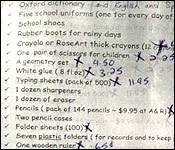 Oxford dictionary and English and
Five school uniforms (one for every day of
School shoes
Rubber boots for rainy days
Crayola or RoseArt thick crayons (12
One pair of scissors for children X 2.25
A geometry set X 4.50
White glue (8 fl oz) X 3.25
Typing sheets (pack of 500) X 11.45
1 dozen sharpeners
1 dozen of eraser
Pencils (pack of 144 pencils - $9.95 at A&R) X
Two pencil cases
Folder sheets (100) X
Seven plastic folders (for records and to keep
One wooden ruler X